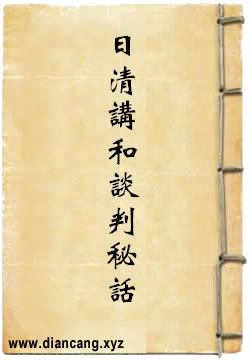 日清講和談判秘話
www.diancang.xyz